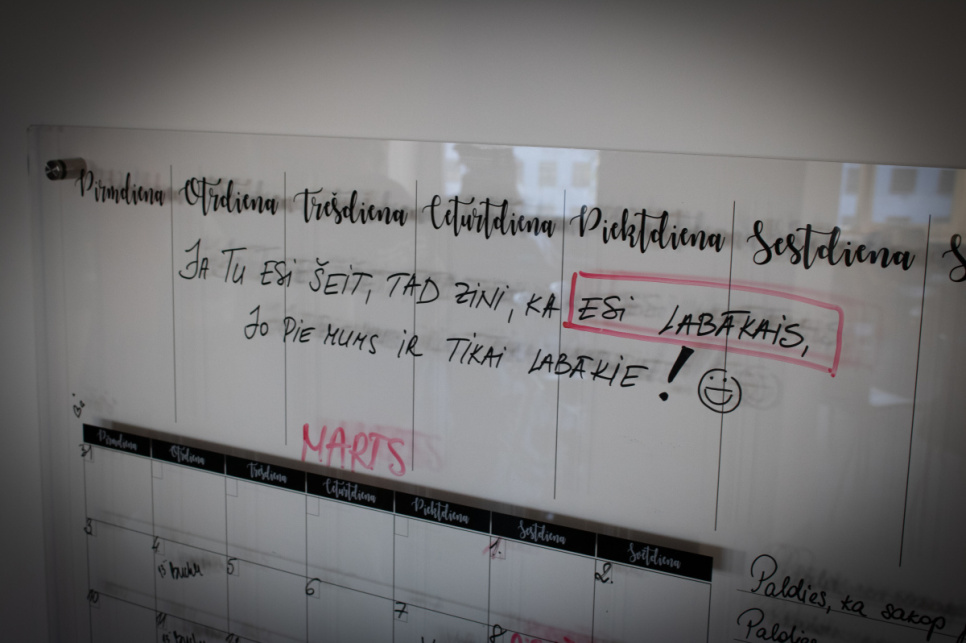 Pirmdiena Otrdiena Trešdiena Ceturtdiena Piektdiena Sestdiena S
JA TU ESi ŠEiT, TAD ZiNi, KA ESi LABĀKAiS,
JO PiE MUMS iR TiKAi LABĀKiE! 
MARTS
Pirmdiena Otrdiena Trešdiena Ceturtdiena Piektdiena Sestdiena Svētdiena
31 1. 2.
3 4 5 6 7 8
10 11
Paldies, ka sakop
Paldies